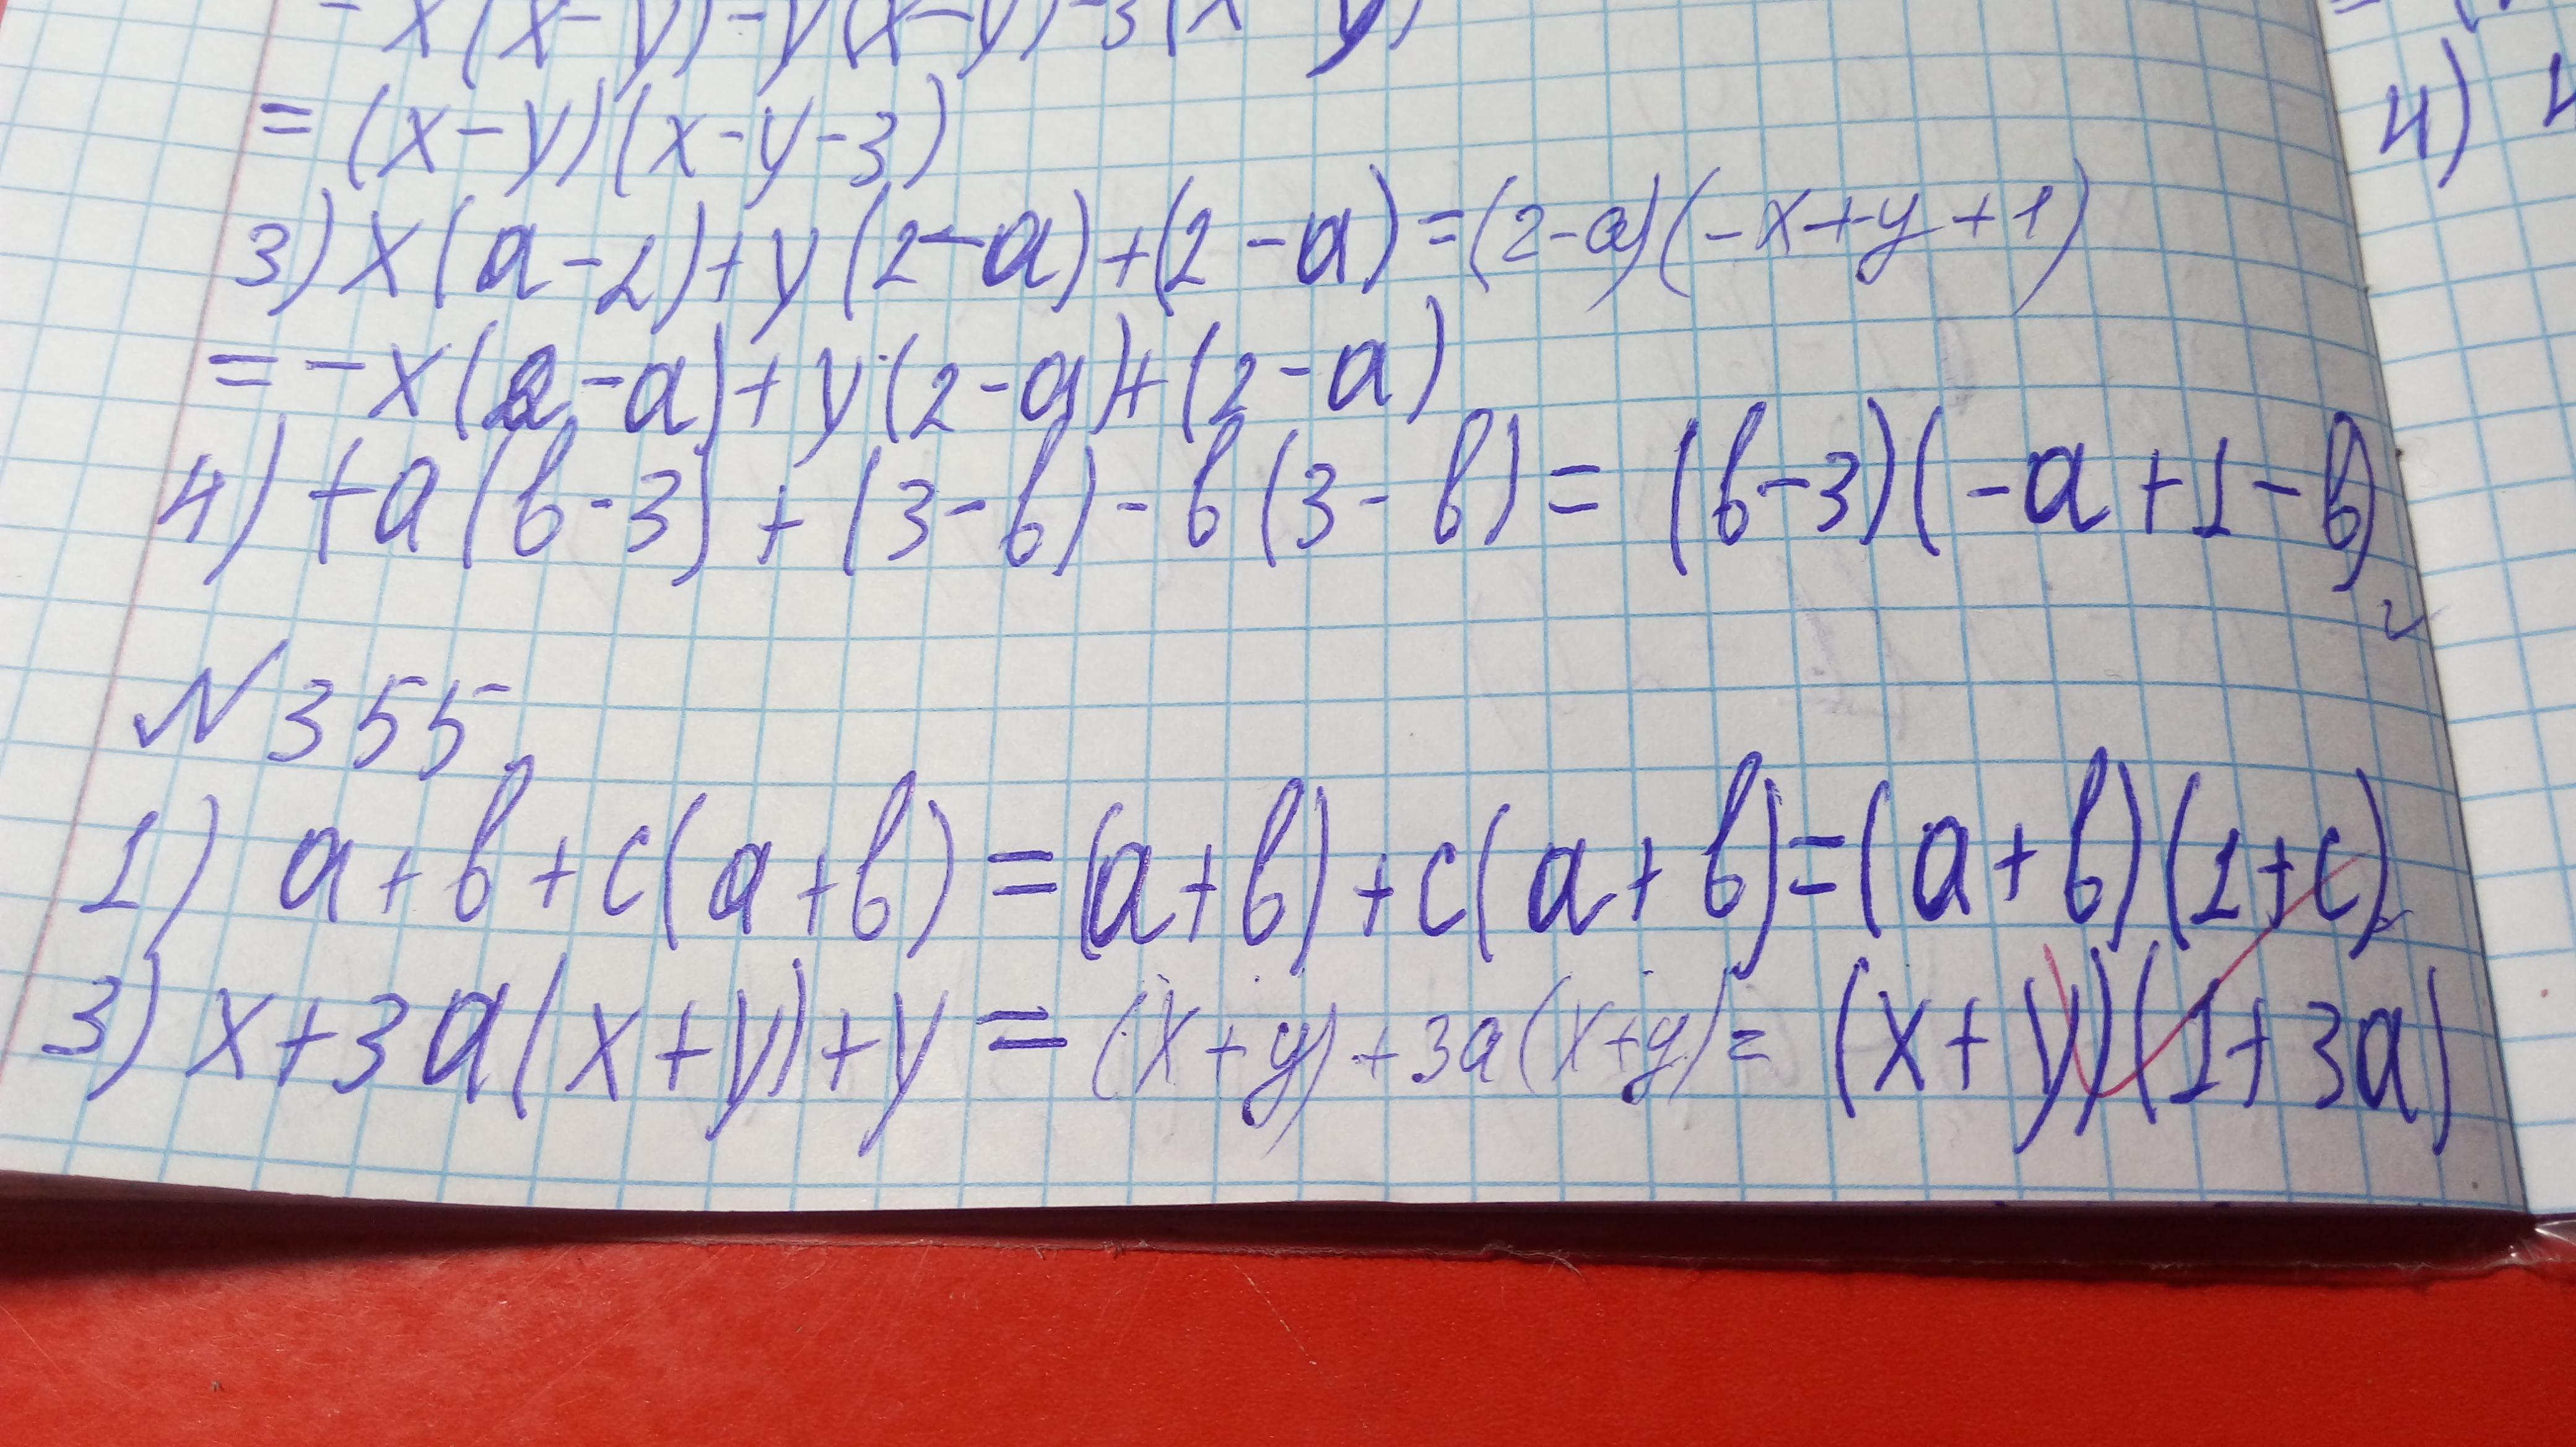 - x(x-y)-y(x-y)-3(x-y)
= (x-y)(x-y-3)
3) x(a-2)+y(2-a)+(2-a)=(2-a)(-x+y+1)
=-x(2-a)+y(2-a)+(2-a)
4) +a(b-3)+(3-b)-b(3-b)=(b-3)(-a+1-b)
N 355.
1) a+b+c(a+b)=(a+b)+c(a+b)=(a+b)(1+c)
3) x+3a(x+y)+y=(x+y)+3a(x+y)=(x+y)(1+3a)
4)